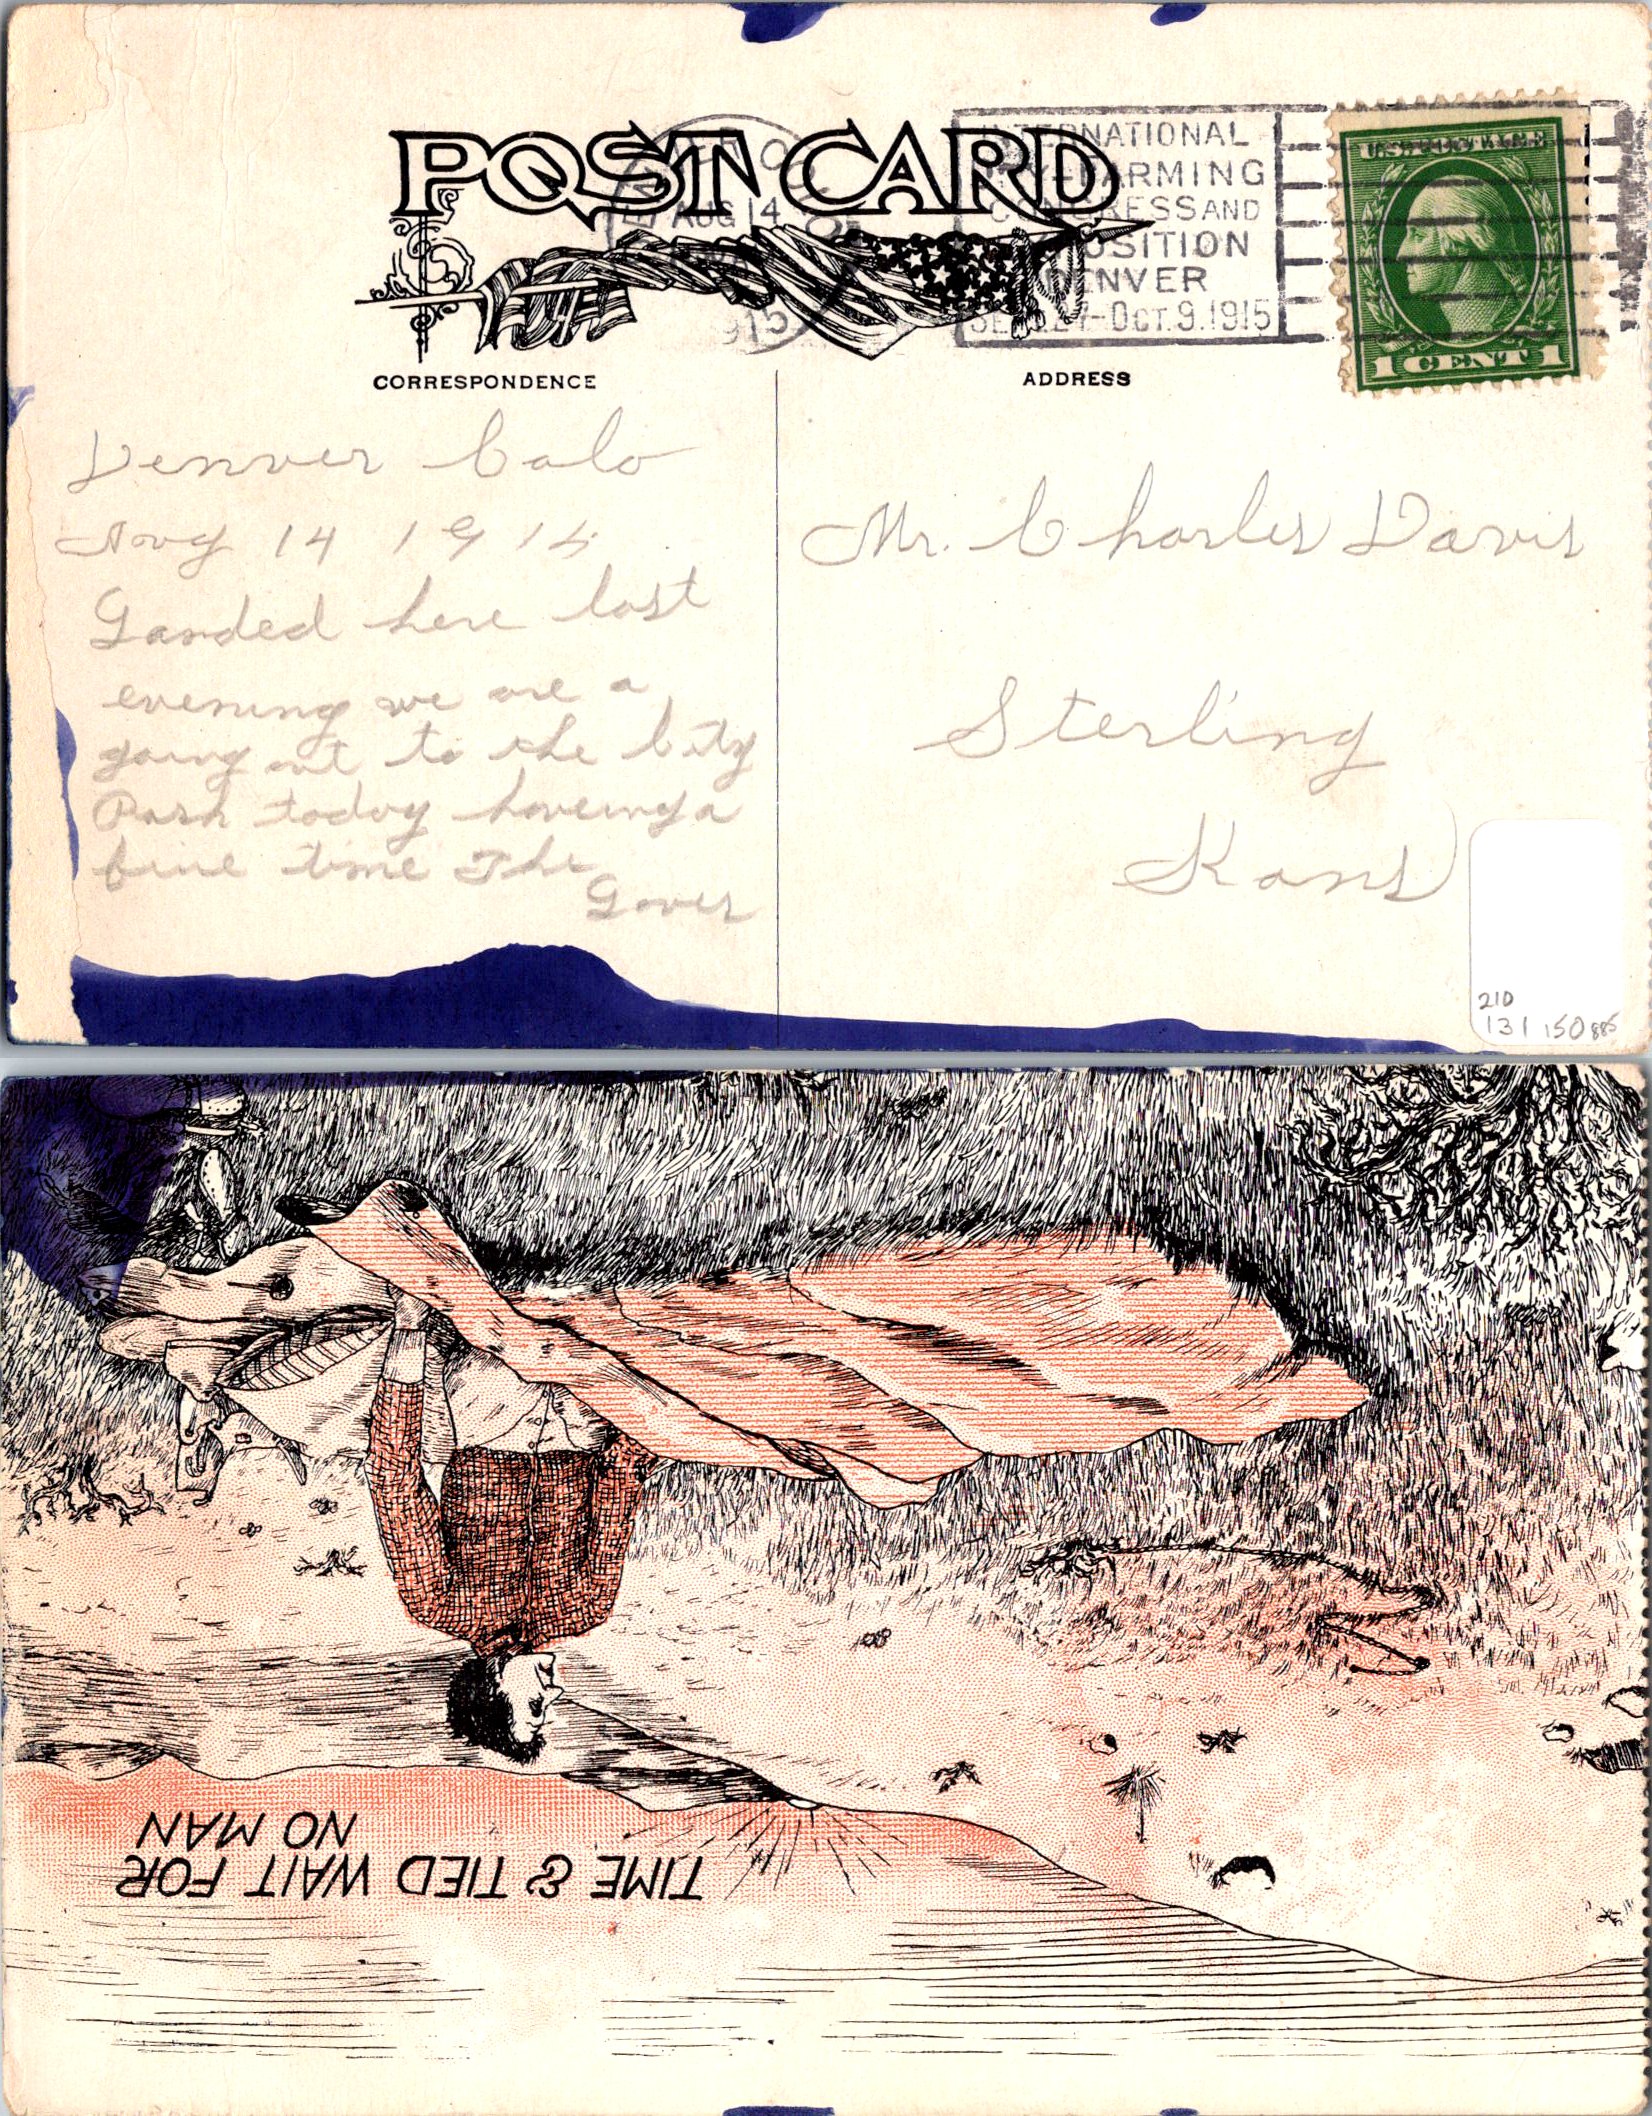 POST CARD
AUG 14
1915
INTERNATIONAL
DRY-FARMING
CONGRESS AND
EXPOSITION
DENVER
SEPT. 27-OCT. 9. 1915
U.S. POSTAGE
1 CENT 1
CORRESPONDENCE
ADDRESS
Denver Colo
Aug 14 1915
Landed here last
evening we are a
going out to the City
Park today haveing a
fine time The
Mr. Charles Davis
Sterling
Kans
210
131 150 885
TIME & TIED WAIT FOR
NO MAN